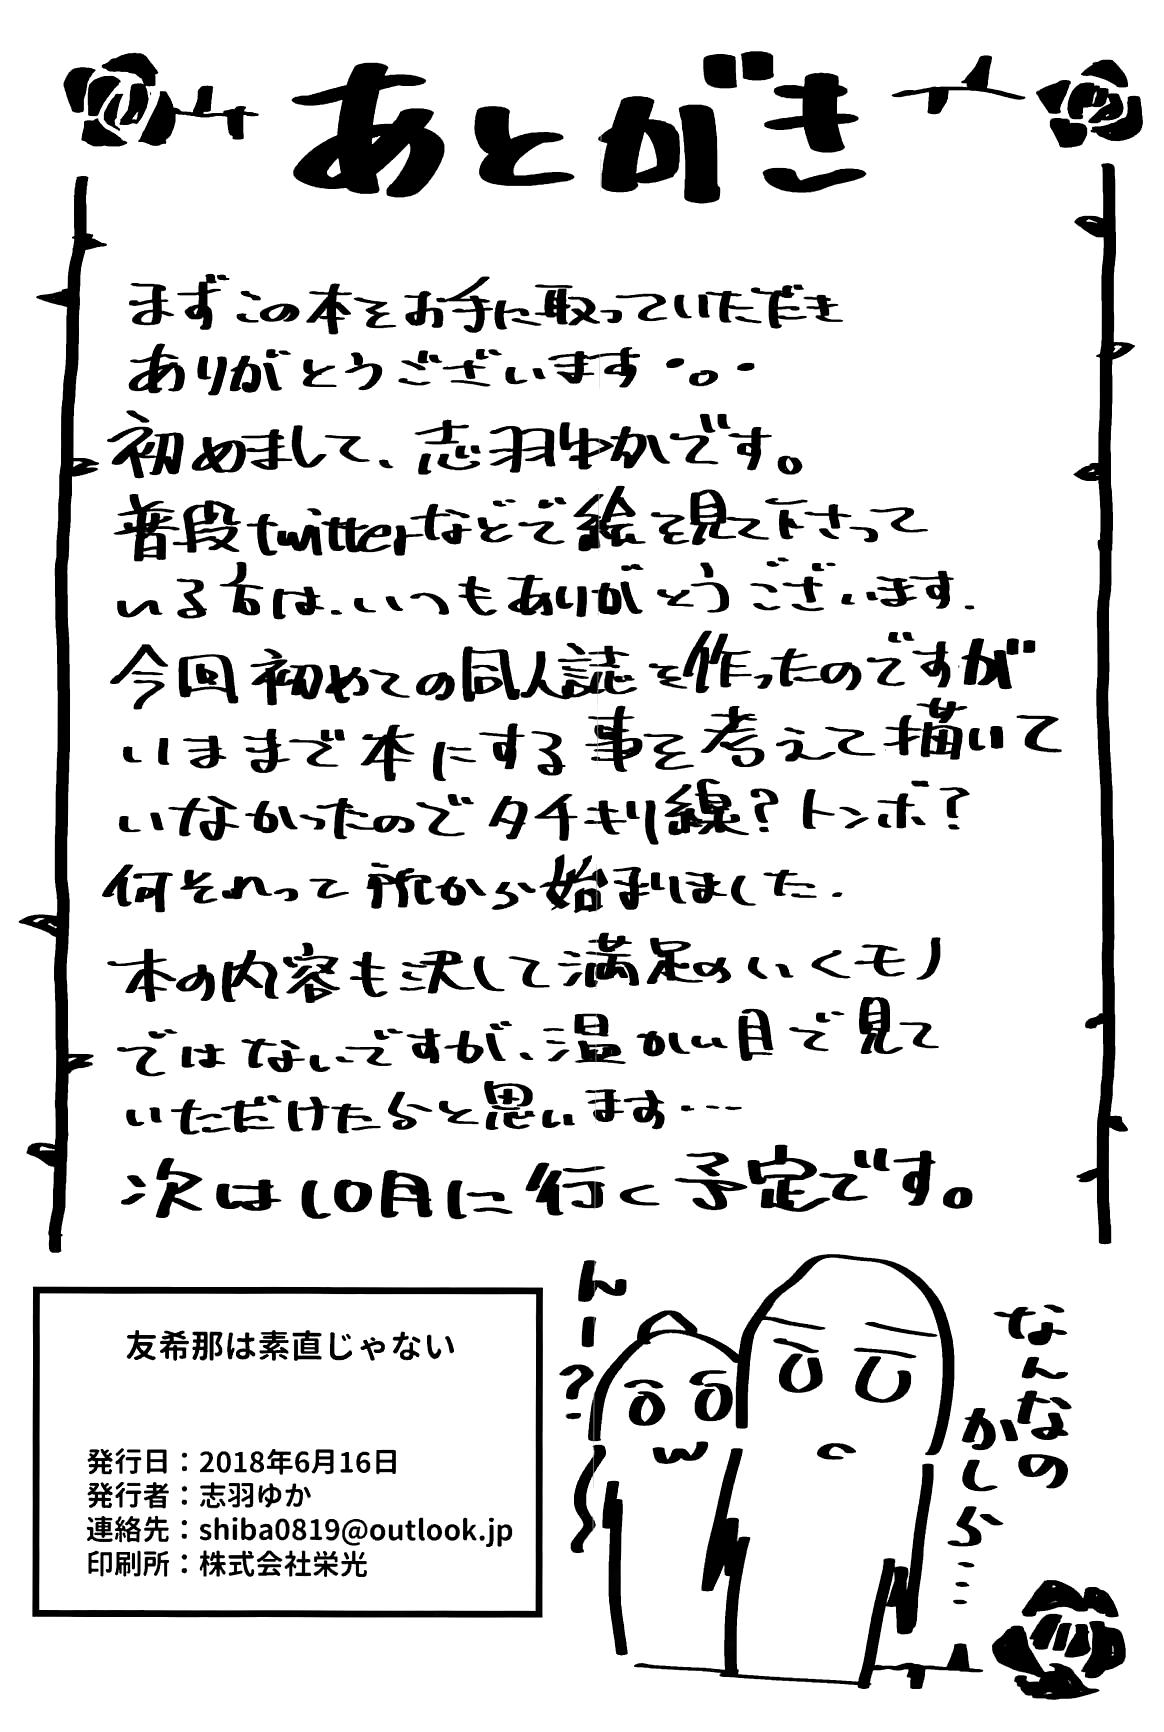 あとがき
まずこの本をお手に取っていただき
ありがとうございます・。・
初めまして、志羽ゆかです。
普段twitterなどで絵を見て下さって
いる方は、いつもありがとうございます.
今回初めての同人誌を作ったのですが
いままで本にする事を考えて描いて
いなかったのでタチキリ線?トンボ?
何それって所から始まりました.
本の内容も決して満足のいくモノ
ではないですが、温かい目で見て
いただけたらと思います…
次は10月に行く予定です。
んー?
なんなの
かしら…
友希那は素直じゃない
発行日：2018年6月16日
発行者：志羽ゆか
連絡先：shiba0819@outlook.jp
印刷所：株式会社栄光